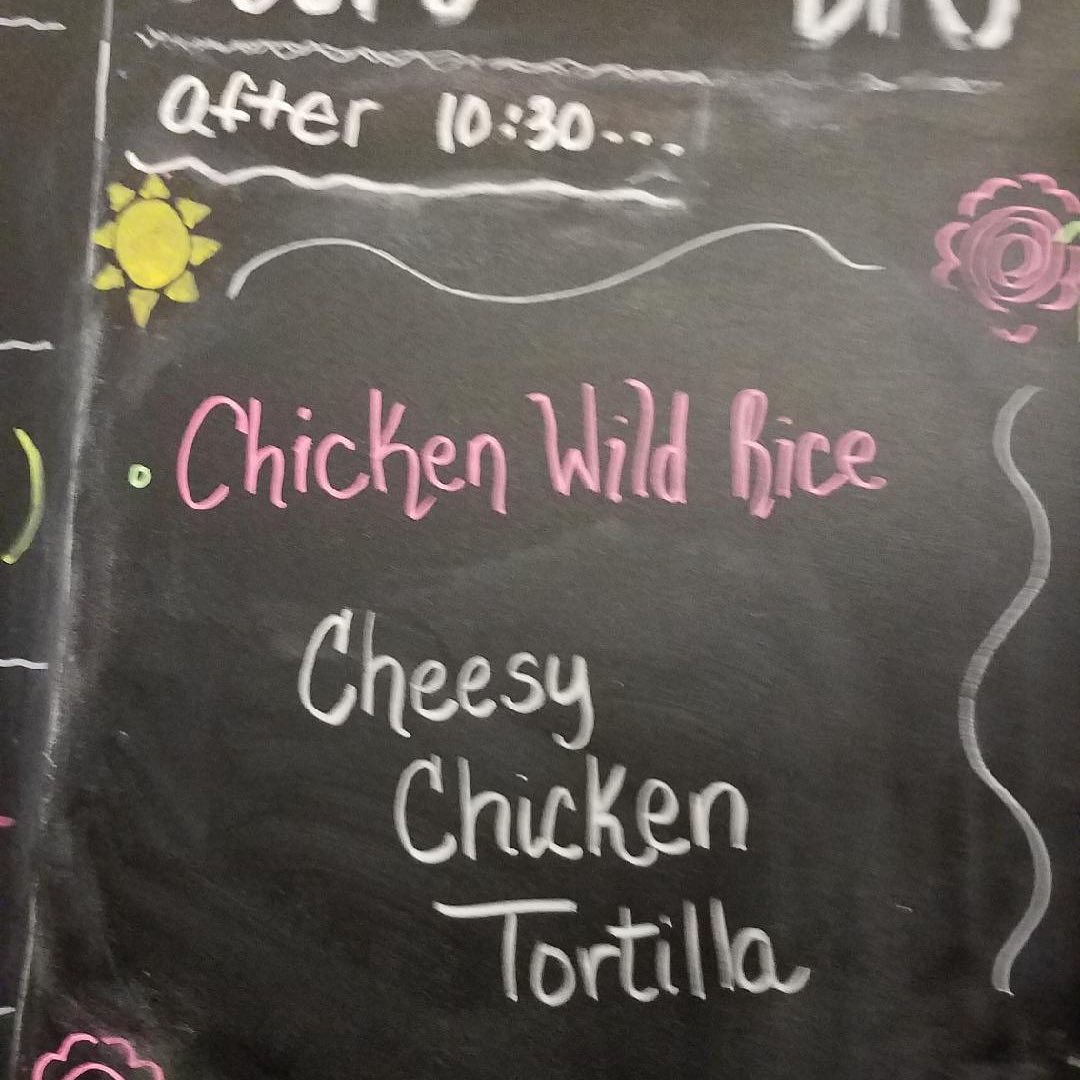 after 10:30...
Chicken Wild Rice
Cheesy
Chicken
Tortilla